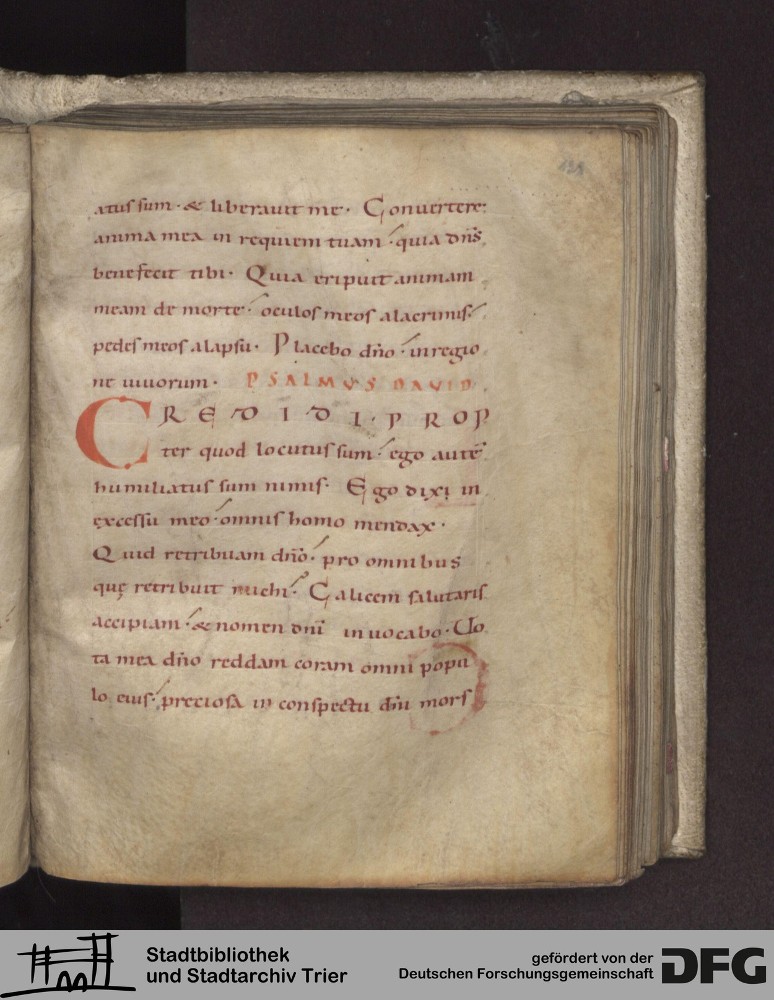 121
atus sum · & liberauit me · Conuertere
anima mea in requiem tuam · quia dn̄s
benefecit tibi · Quia eripuit animam
meam de morte · oculos meos a lacrimis ·
pedes meos a lapsu · Placebo dn̄o · in regio
ne uiuorum · PSALMVS DAVID
CREDIDI · PROP
ter quod locutus sum · ego autē
humiliatus sum nimis · Ego dixi in
excessu meo · omnis homo mendax ·
Quid retribuam dn̄o · pro omnibus
quę retribuit michi · Calicem salutaris
accipiam · & nomen dn̄i inuocabo · Uo
ta mea dn̄o reddam coram omni popu
lo eius · preciosa in conspectu dn̄i mors
Stadtbibliothek
und Stadtarchiv Trier
gefördert von der
Deutschen Forschungsgemeinschaft
DFG